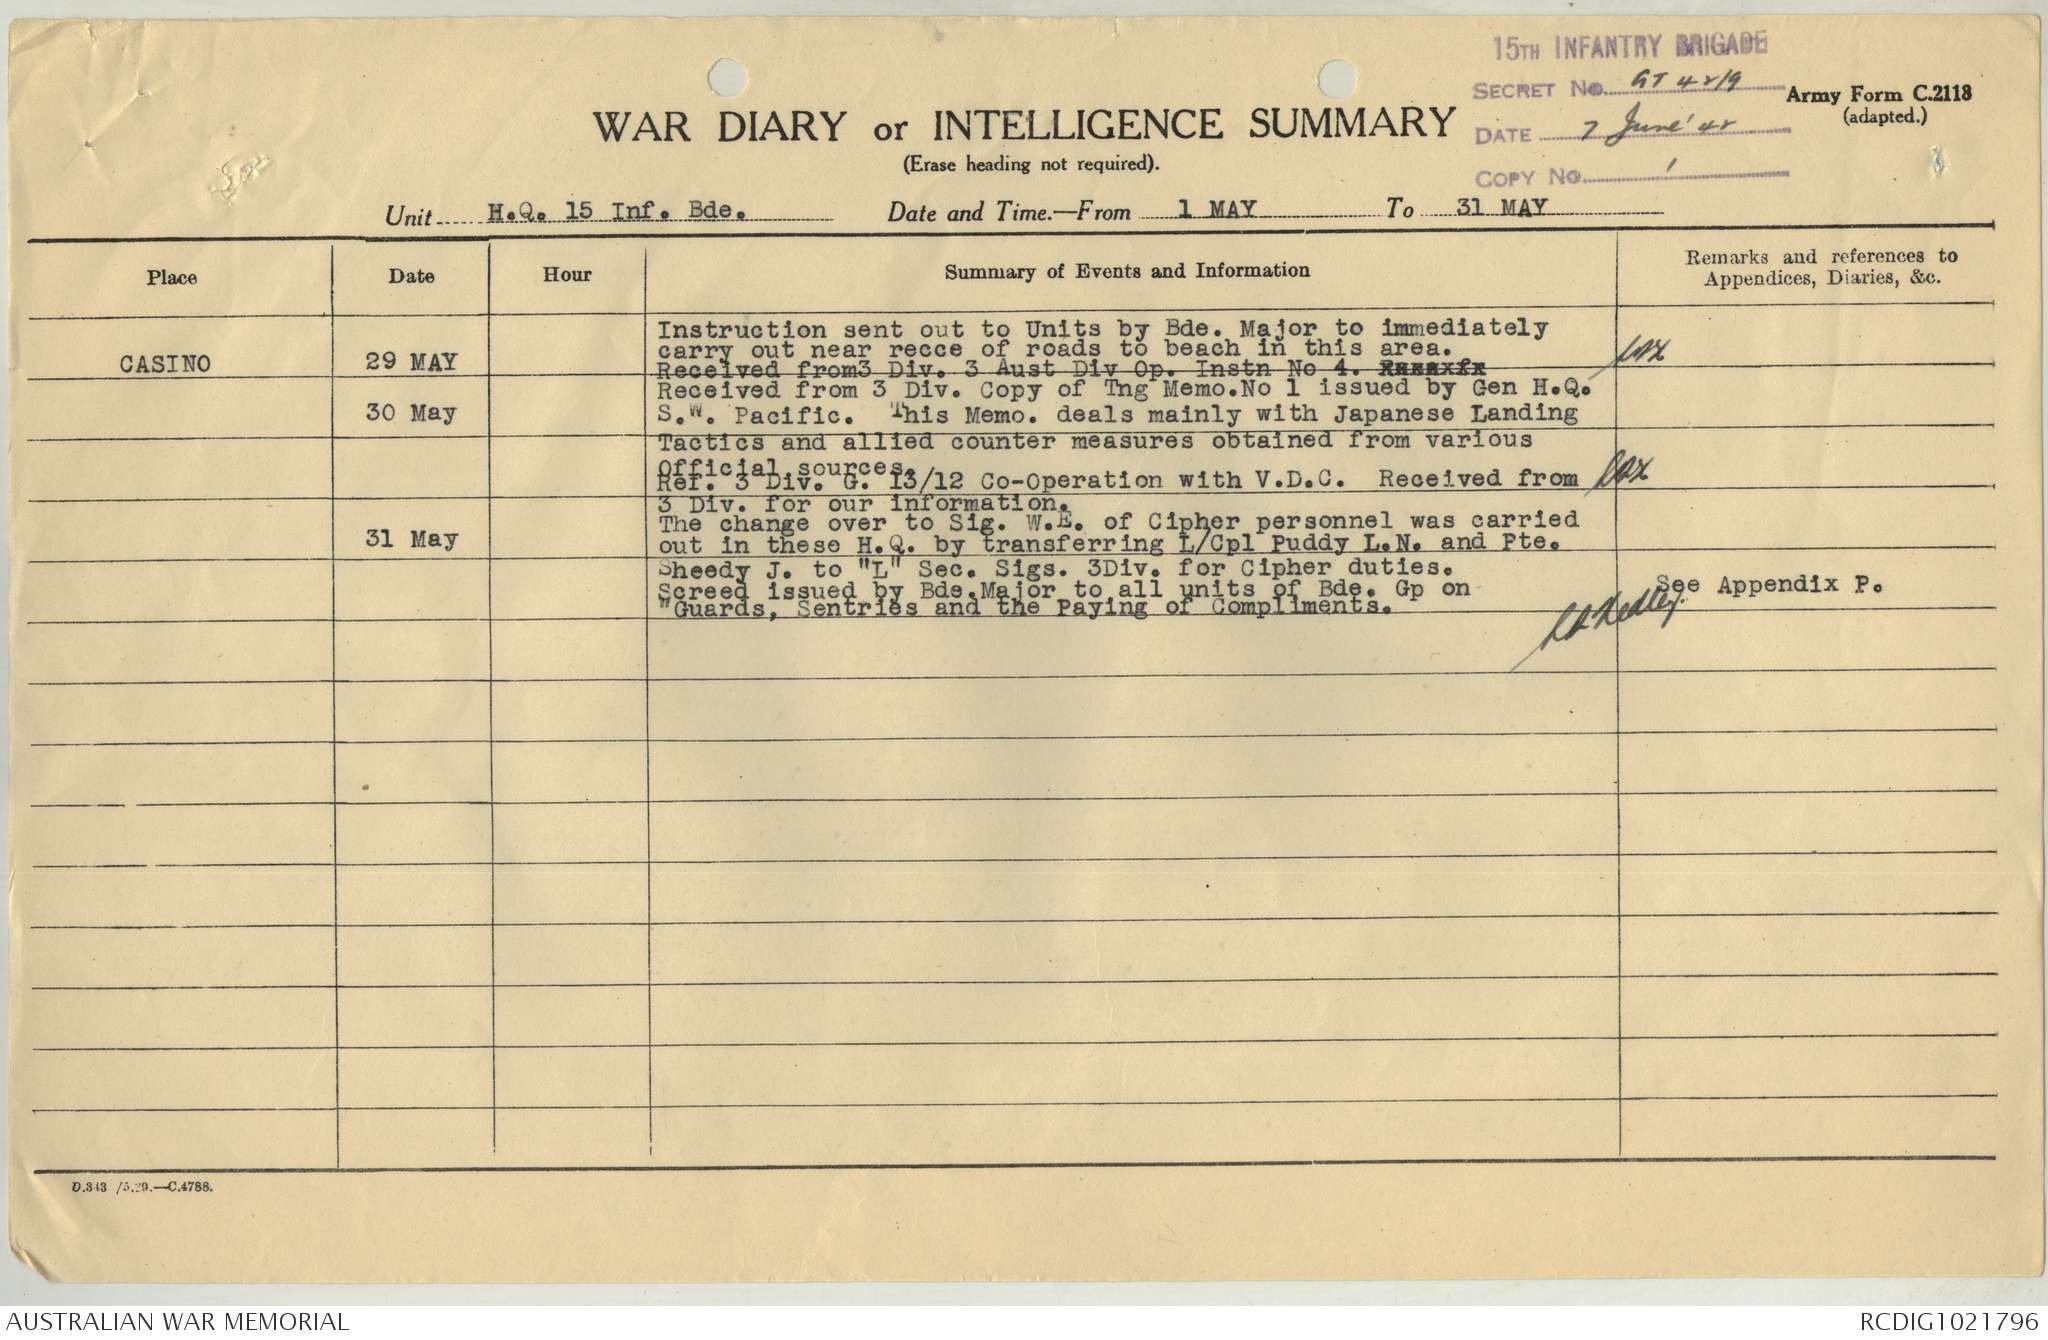 15TH INFANTRY BRIGADE
SECRET No. GT 4219
DATE 7 June '42
COPY No. 1
Army Form C.2118
(adapted.)
WAR DIARY or INTELLIGENCE SUMMARY
(Erase heading not required).
Unit H.Q. 15 Inf. Bde. Date and Time.—From 1 MAY To 31 MAY
Place Date Hour Summary of Events and Information Remarks and references to
Appendices, Diaries, &c.
Instruction sent out to Units by Bde. Major to immediately
carry out near recce of roads to beach in this area.
CASINO 29 MAY Received from3 Div. 3 Aust Div Op. Instn No 4.
Received from 3 Div. Copy of Tng Memo.No 1 issued by Gen H.Q.
30 May S.W. Pacific. This Memo. deals mainly with Japanese Landing
Tactics and allied counter measures obtained from various
Official sources.
Ref. 3 Div. G. 13/12 Co-Operation with V.D.C. Received from
3 Div. for our information.
The change over to Sig. W.E. of Cipher personnel was carried
31 May out in these H.Q. by transferring L/Cpl Puddy L.N. and Pte.
Sheedy J. to "L" Sec. Sigs. 3Div. for Cipher duties.
Screed issued by Bde.Major to all units of Bde. Gp on See Appendix P.
"Guards, Sentries and the Paying of Compliments.
D.343 /5.39.—C.4788.
AUSTRALIAN WAR MEMORIAL RCDIG1021796